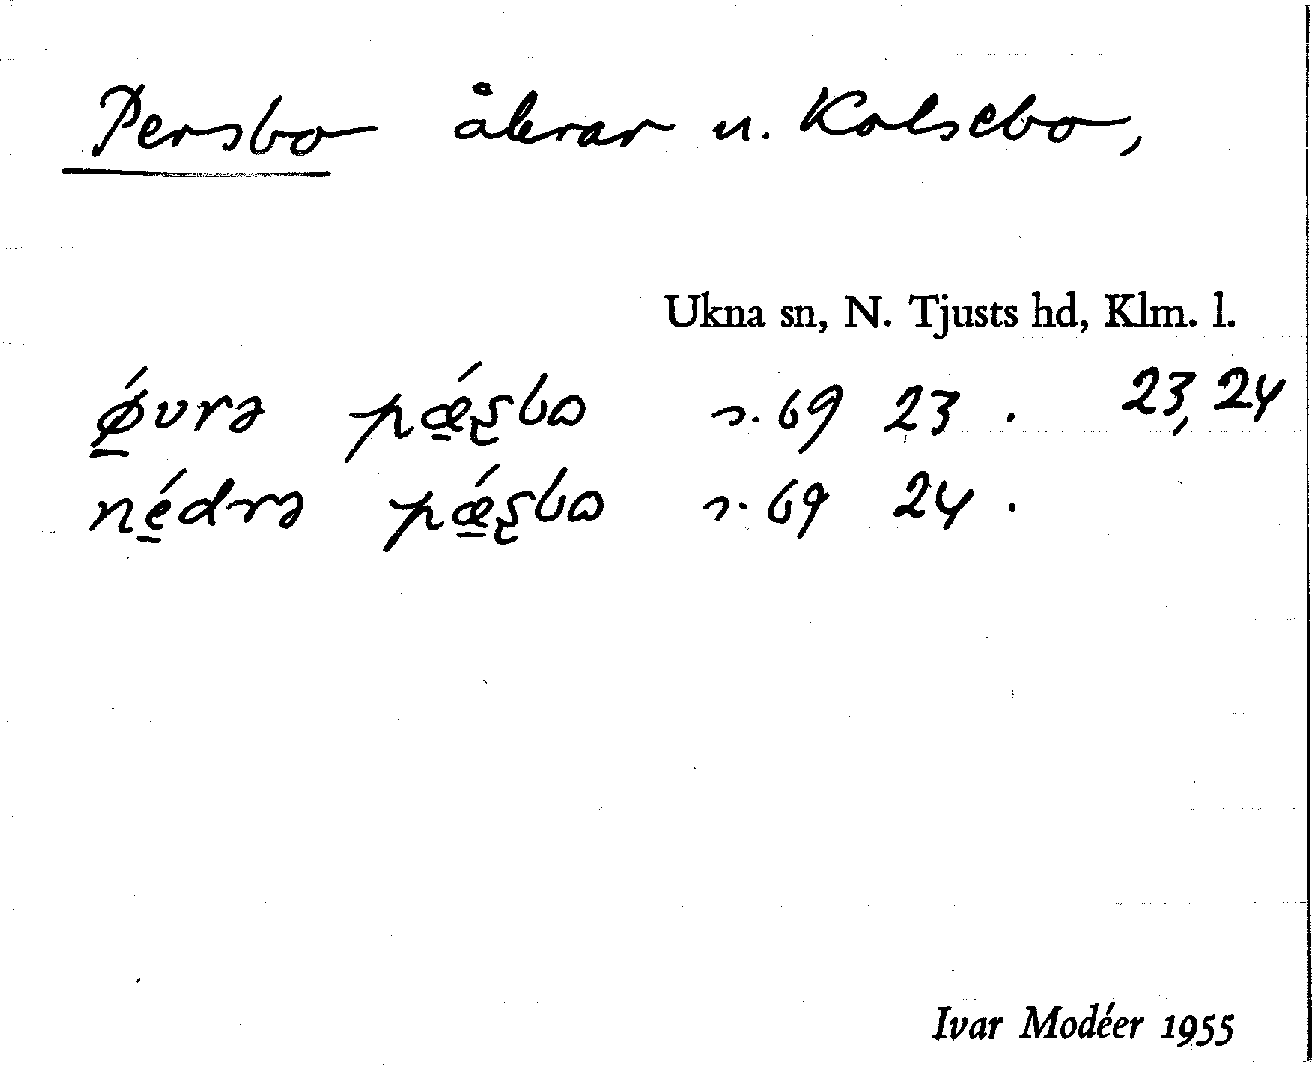 Persbo åkrar u. Kolsebo,
Ukna sn, N. Tjusts hd, Klm. l.
ǿ̱vrə pǽ̱ʂbω s. 69 23 . 23, 24
né̱drə pǽ̱ʂbω s. 69 24 .
Ivar Modéer 1955